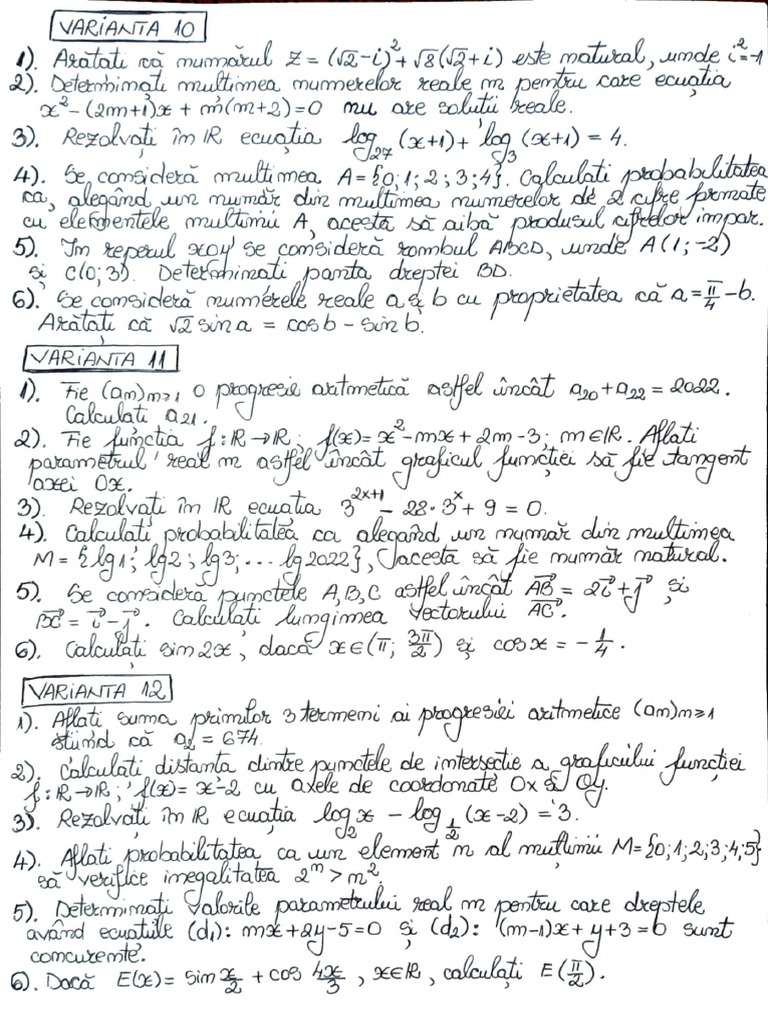 VARIANTA 10
1). Arătați că numărul z = (√2-i)²+√8(√2+i) este natural, unde i²=-1
2). Determinați mulțimea numerelor reale m pentru care ecuația
x²-(2m+1)x + m(m+2)=0 nu are soluții reale.
3). Rezolvați în ℝ ecuația log₂₇(x+1)+log₃(x+1) = 4.
4). Se consideră mulțimea A={0;1;2;3;4}. Calculați probabilitatea
ca, alegând un număr din mulțimea numerelor de 2 cifre formate
cu elementele mulțimii A, acesta să aibă produsul cifrelor impar.
5). În reperul xoy se consideră rombul ABCD, unde A(1;-2)
și C(0;3). Determinați panta dreptei BD.
6). Se consideră numerele reale a și b cu proprietatea că a=π/4-b.
Arătați că √2 sin a = cos b - sin b.
VARIANTA 11
1). Fie (am)m≥1 o progresie aritmetică astfel încât a20+a22 = 2022.
Calculați a21.
2). Fie funcția f:ℝ→ℝ; f(x)=x²-mx+2m-3; m∈ℝ. Aflați
parametrul real m astfel încât graficul funcției să fie tangent
axei Ox.
3). Rezolvați în ℝ ecuația 3²ˣ⁺¹ - 28·3ˣ + 9 = 0.
4). Calculați probabilitatea ca alegând un număr din mulțimea
M = {lg1; lg2; lg3; ... lg2022}, acesta să fie număr natural.
5). Se consideră punctele A,B,C astfel încât AB⃗ = 2i⃗+j⃗ și
BC⃗ = i⃗-j⃗. Calculați lungimea vectorului AC⃗.
6). Calculați sin2x, dacă x∈(π; 3π/2) și cosx = -1/4.
VARIANTA 12
1). Aflați suma primilor 3 termeni ai progresiei aritmetice (am)m≥1
știind că a2 = 674.
2). Calculați distanța dintre punctele de intersecție a graficului funcției
f:ℝ→ℝ; f(x)=x-2 cu axele de coordonate Ox și Oy.
3). Rezolvați în ℝ ecuația log₂x - log_{1/2}(x-2) = 3.
4). Aflați probabilitatea ca un element m al mulțimii M={0;1;2;3;4;5}
să verifice inegalitatea 2ᵐ > m².
5). Determinați valorile parametrului real m pentru care dreptele
având ecuațiile (d1): mx+2y-5=0 și (d2): (m-1)x+y+3=0 sunt
concurente.
6). Dacă E(x)= sin x/2 + cos 4x/3, x∈ℝ, calculați E(π/2).